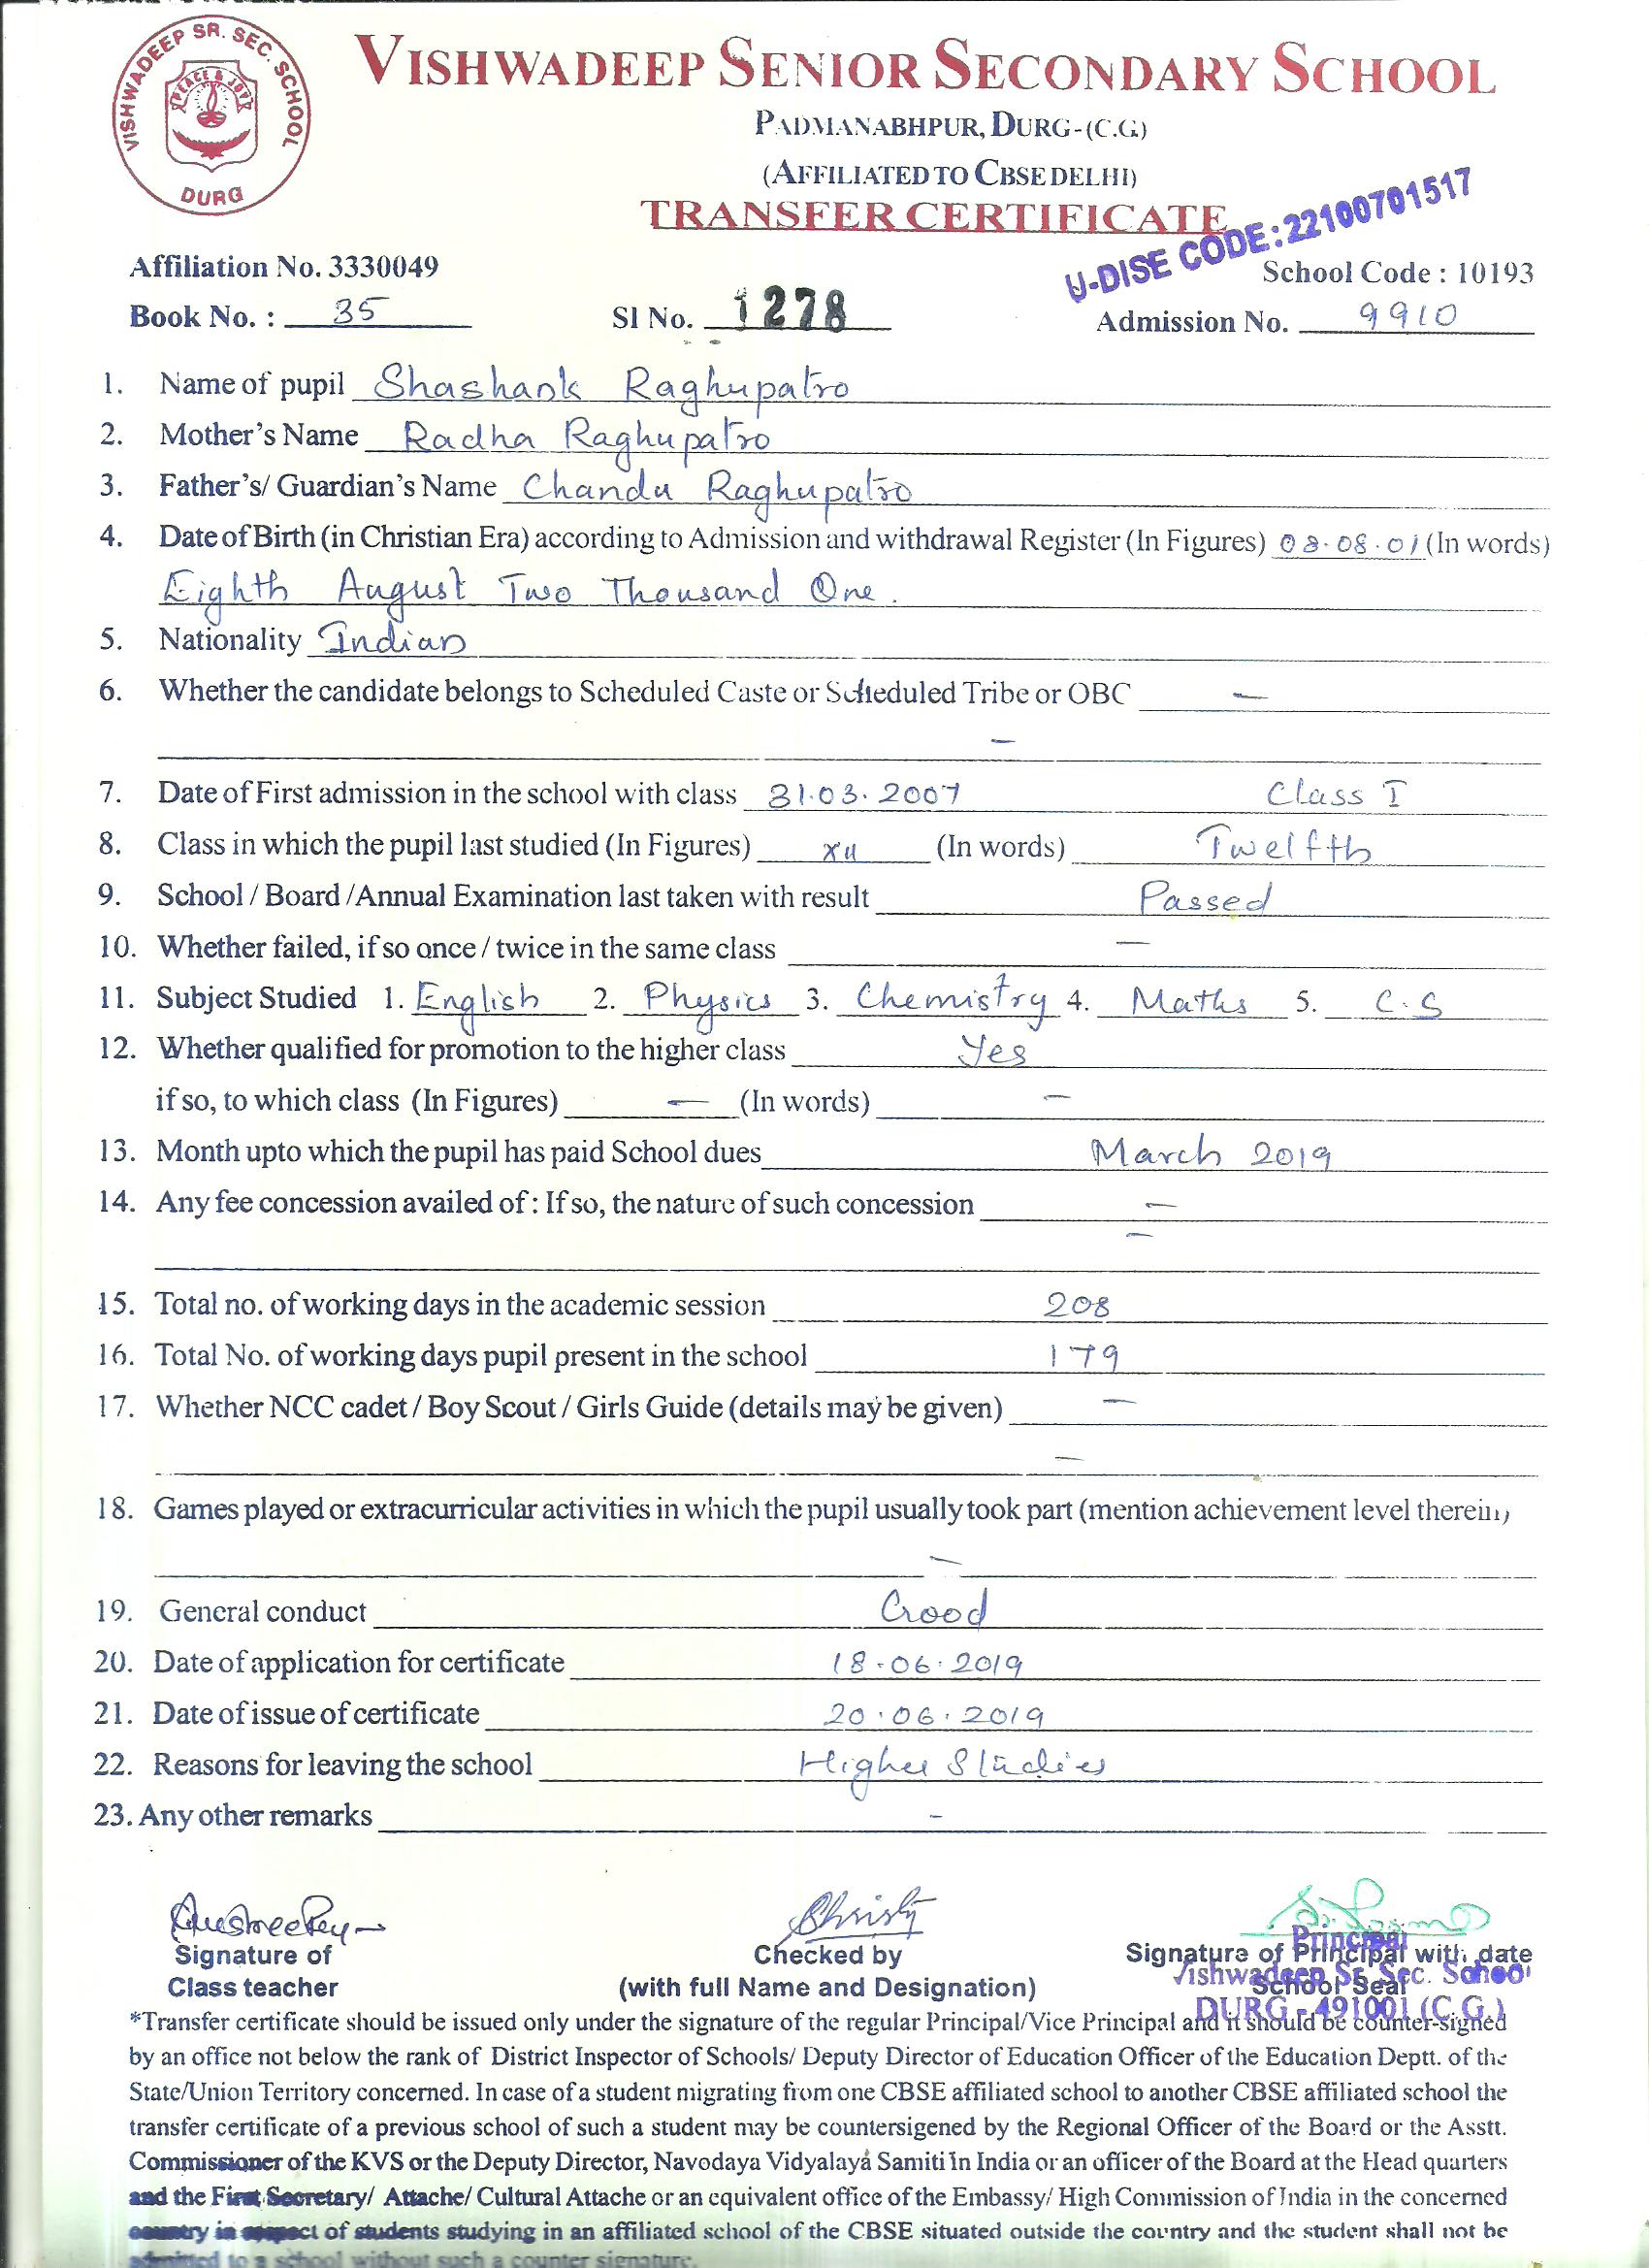 VISHWADEEP SR. SEC. SCHOOL
PEACE & LOVE
DURG
VISHWADEEP SENIOR SECONDARY SCHOOL
PADMANABHPUR, DURG-(C.G.)
(AFFILIATED TO CBSE DELHI)
TRANSFER CERTIFICATE
U-DISE CODE:22100701517
Affiliation No. 3330049 School Code : 10193
Book No. : 35 Sl No. 1278 Admission No. 9910
1. Name of pupil Shashank Raghupatro
2. Mother's Name Radha Raghupatro
3. Father's/ Guardian's Name Chandu Raghupatro
4. Date of Birth (in Christian Era) according to Admission and withdrawal Register (In Figures) 08.08.01 (In words)
Eighth August Two Thousand One.
5. Nationality Indian
6. Whether the candidate belongs to Scheduled Caste or Scheduled Tribe or OBC —
–
7. Date of First admission in the school with class 31.03.2007 Class I
8. Class in which the pupil last studied (In Figures) XII (In words) Twelfth
9. School / Board /Annual Examination last taken with result Passed
10. Whether failed, if so once / twice in the same class —
11. Subject Studied 1. English 2. Physics 3. Chemistry 4. Maths 5. C.S
12. Whether qualified for promotion to the higher class Yes
if so, to which class (In Figures) — (In words) –
13. Month upto which the pupil has paid School dues March 2019
14. Any fee concession availed of : If so, the nature of such concession —
–
15. Total no. of working days in the academic session 208
16. Total No. of working days pupil present in the school 179
17. Whether NCC cadet / Boy Scout / Girls Guide (details may be given) —
–
18. Games played or extracurricular activities in which the pupil usually took part (mention achievement level therein)
–
19. General conduct Good
20. Date of application for certificate 18.06.2019
21. Date of issue of certificate 20.06.2019
22. Reasons for leaving the school Higher Studies
23. Any other remarks –
Christy
Signature of Checked by Signature of Principal with date
Class teacher (with full Name and Designation) School Seal
Principal
Vishwadeep Sr. Sec. School
DURG - 491001 (C.G.)
*Transfer certificate should be issued only under the signature of the regular Principal/Vice Principal and it should be counter-signed
by an office not below the rank of District Inspector of Schools/ Deputy Director of Education Officer of the Education Deptt. of the
State/Union Territory concerned. In case of a student migrating from one CBSE affiliated school to another CBSE affiliated school the
transfer certificate of a previous school of such a student may be countersigned by the Regional Officer of the Board or the Asstt.
Commissioner of the KVS or the Deputy Director, Navodaya Vidyalaya Samiti In India or an officer of the Board at the Head quarters
and the First Secretary/ Attache/ Cultural Attache or an equivalent office of the Embassy/ High Commission of India in the concerned
country in respect of students studying in an affiliated school of the CBSE situated outside the country and the student shall not be
admitted to a school without such a counter signature.